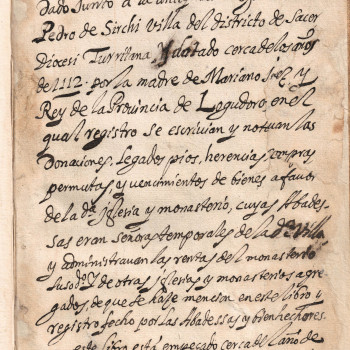 dado junto a la
Pedro de Sirchi Villa del districto de Sacer
Diocesi Turritana y dotado cerca de los años
de 1112. por la madre de Mariano Juez y
Rey de la Provincia de Logudoro en el
qual registro se escrivian y notavan las
Donaciones, Legados pios, herencias, compras
permutas, y vencimientos de bienes a favor
de la dª iglesia y monasterio, cuyas Abades-
sas eran señoras temporales de la dª Villa
y administravan las rentas del monasterio
suso dº y de otras iglesias y monasterios agre-
gados, de que se haze mension en este libro y
registro fecho por las Abadessas y bienhechores.
este libro está empeçado cerca del año de